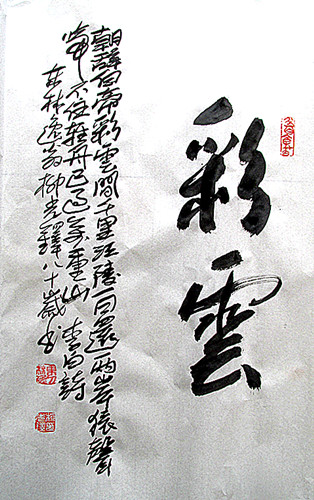 彩雲
朝辭白帝彩雲間千里江陵一日還兩岸猿聲
啼不住輕舟已過萬重山 李白詩
東林逸翁柳光鐸八十歲書